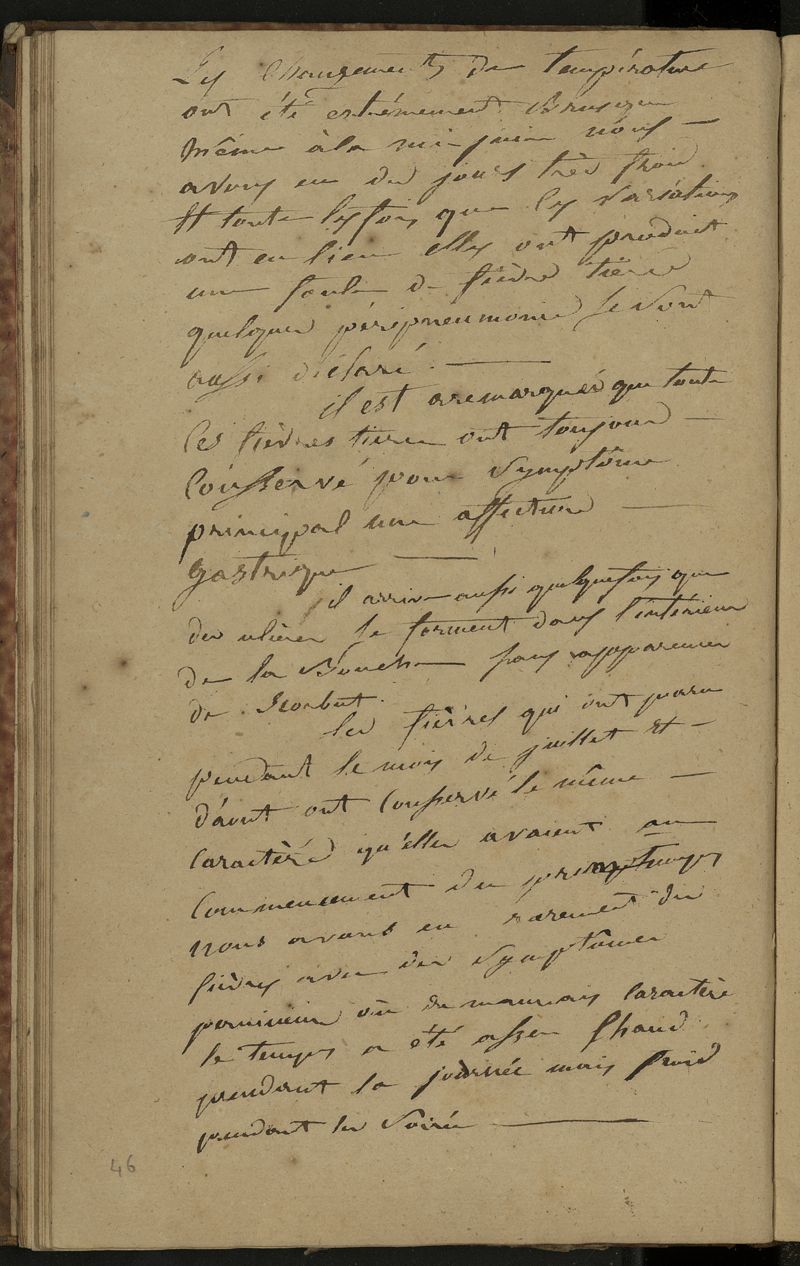 Les Changements de température
ont été extrémement Brusque
même à la mi-juin nous
avons eu des jours très froid
Et toute les fois que les variations
ont eu lieu elles ont produit
une foule de fièvre tierce
quelques péripneumonie se sont
aussi déclaré.
il est a remarquér que toute
Ces fièvres tierce ont toujours
Conssérvé pour symptôme
principal une affection
gastrique
il arrive aussi quelquefois que
des ulcères se forment dans l'intérieur
de la Bouche sans apparence
de Scorbut.
les fièvres qui ont paru
pendant le mois de juillet Et
d'àout ont Conssérvé le même
Caractère qu'elles avaient au
Commencement du printemps
nous avons eu rarement des
fièvres avec des symptômes
pernicieux ou de mauvais Caractère
le temps a été assez Chaud
pendant la journée mais froid
pendant les Soirée
46